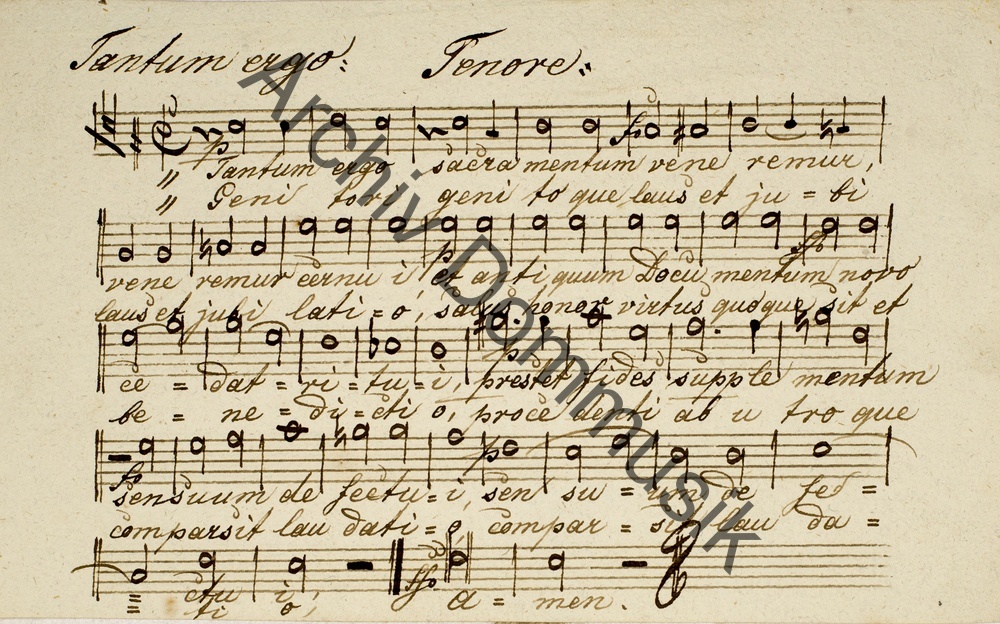 Tantum ergo: Tenore:
Archiv Dommusik
" Tantum ergo sacra mentum vene remur,
" Geni tori geni to que laus et ju = bi
vene remur cernu i et anti quum Docu mentum novo
laus et jubi lati = o, salus honor virtus quoque sit et
ce = dat = ri = tu = i, prestet fides supple mentum
be = ne = di = cti o, proce denti ab u tro que
sensuum de fectu = i, sen su = um de fec =
comparsit lau dati = o compar = sit lau da =
= ctu i, A = men.
= ti o;